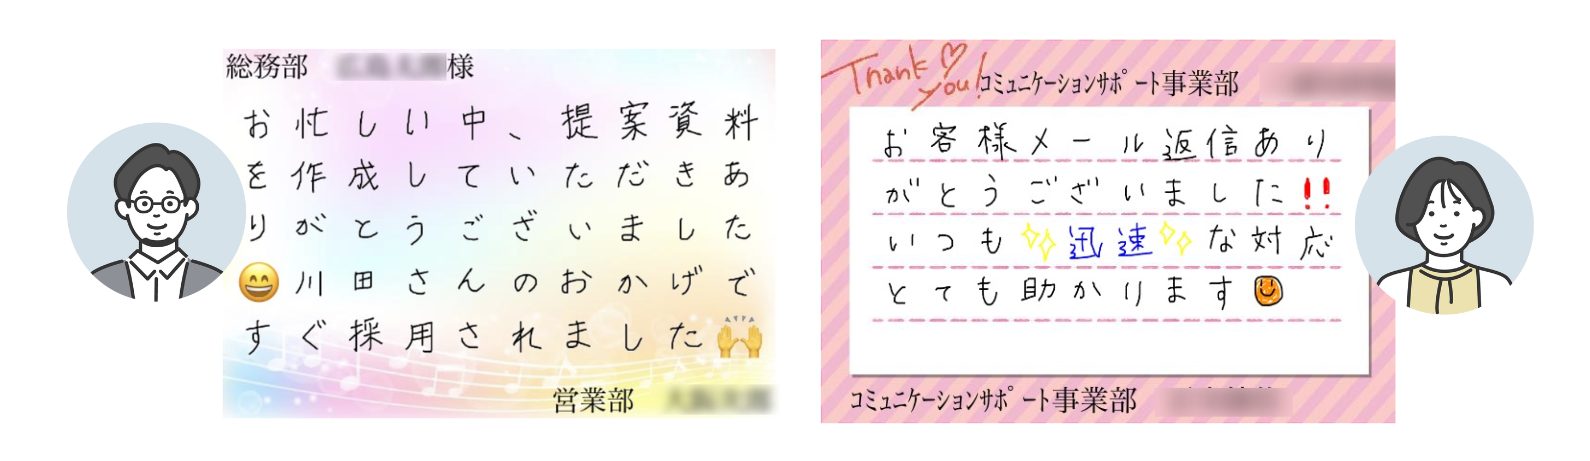 総務部 様
お忙しい中、提案資料
を作成していただきあ
りがとうございました
😄川田さんのおかげで
すぐ採用されました🙌
営業部
Thank you!
コミュニケーションサポート事業部
お客様メール返信あり
がとうございました!!
いつも✨迅速✨な対応
とても助かります🙂
コミュニケーションサポート事業部